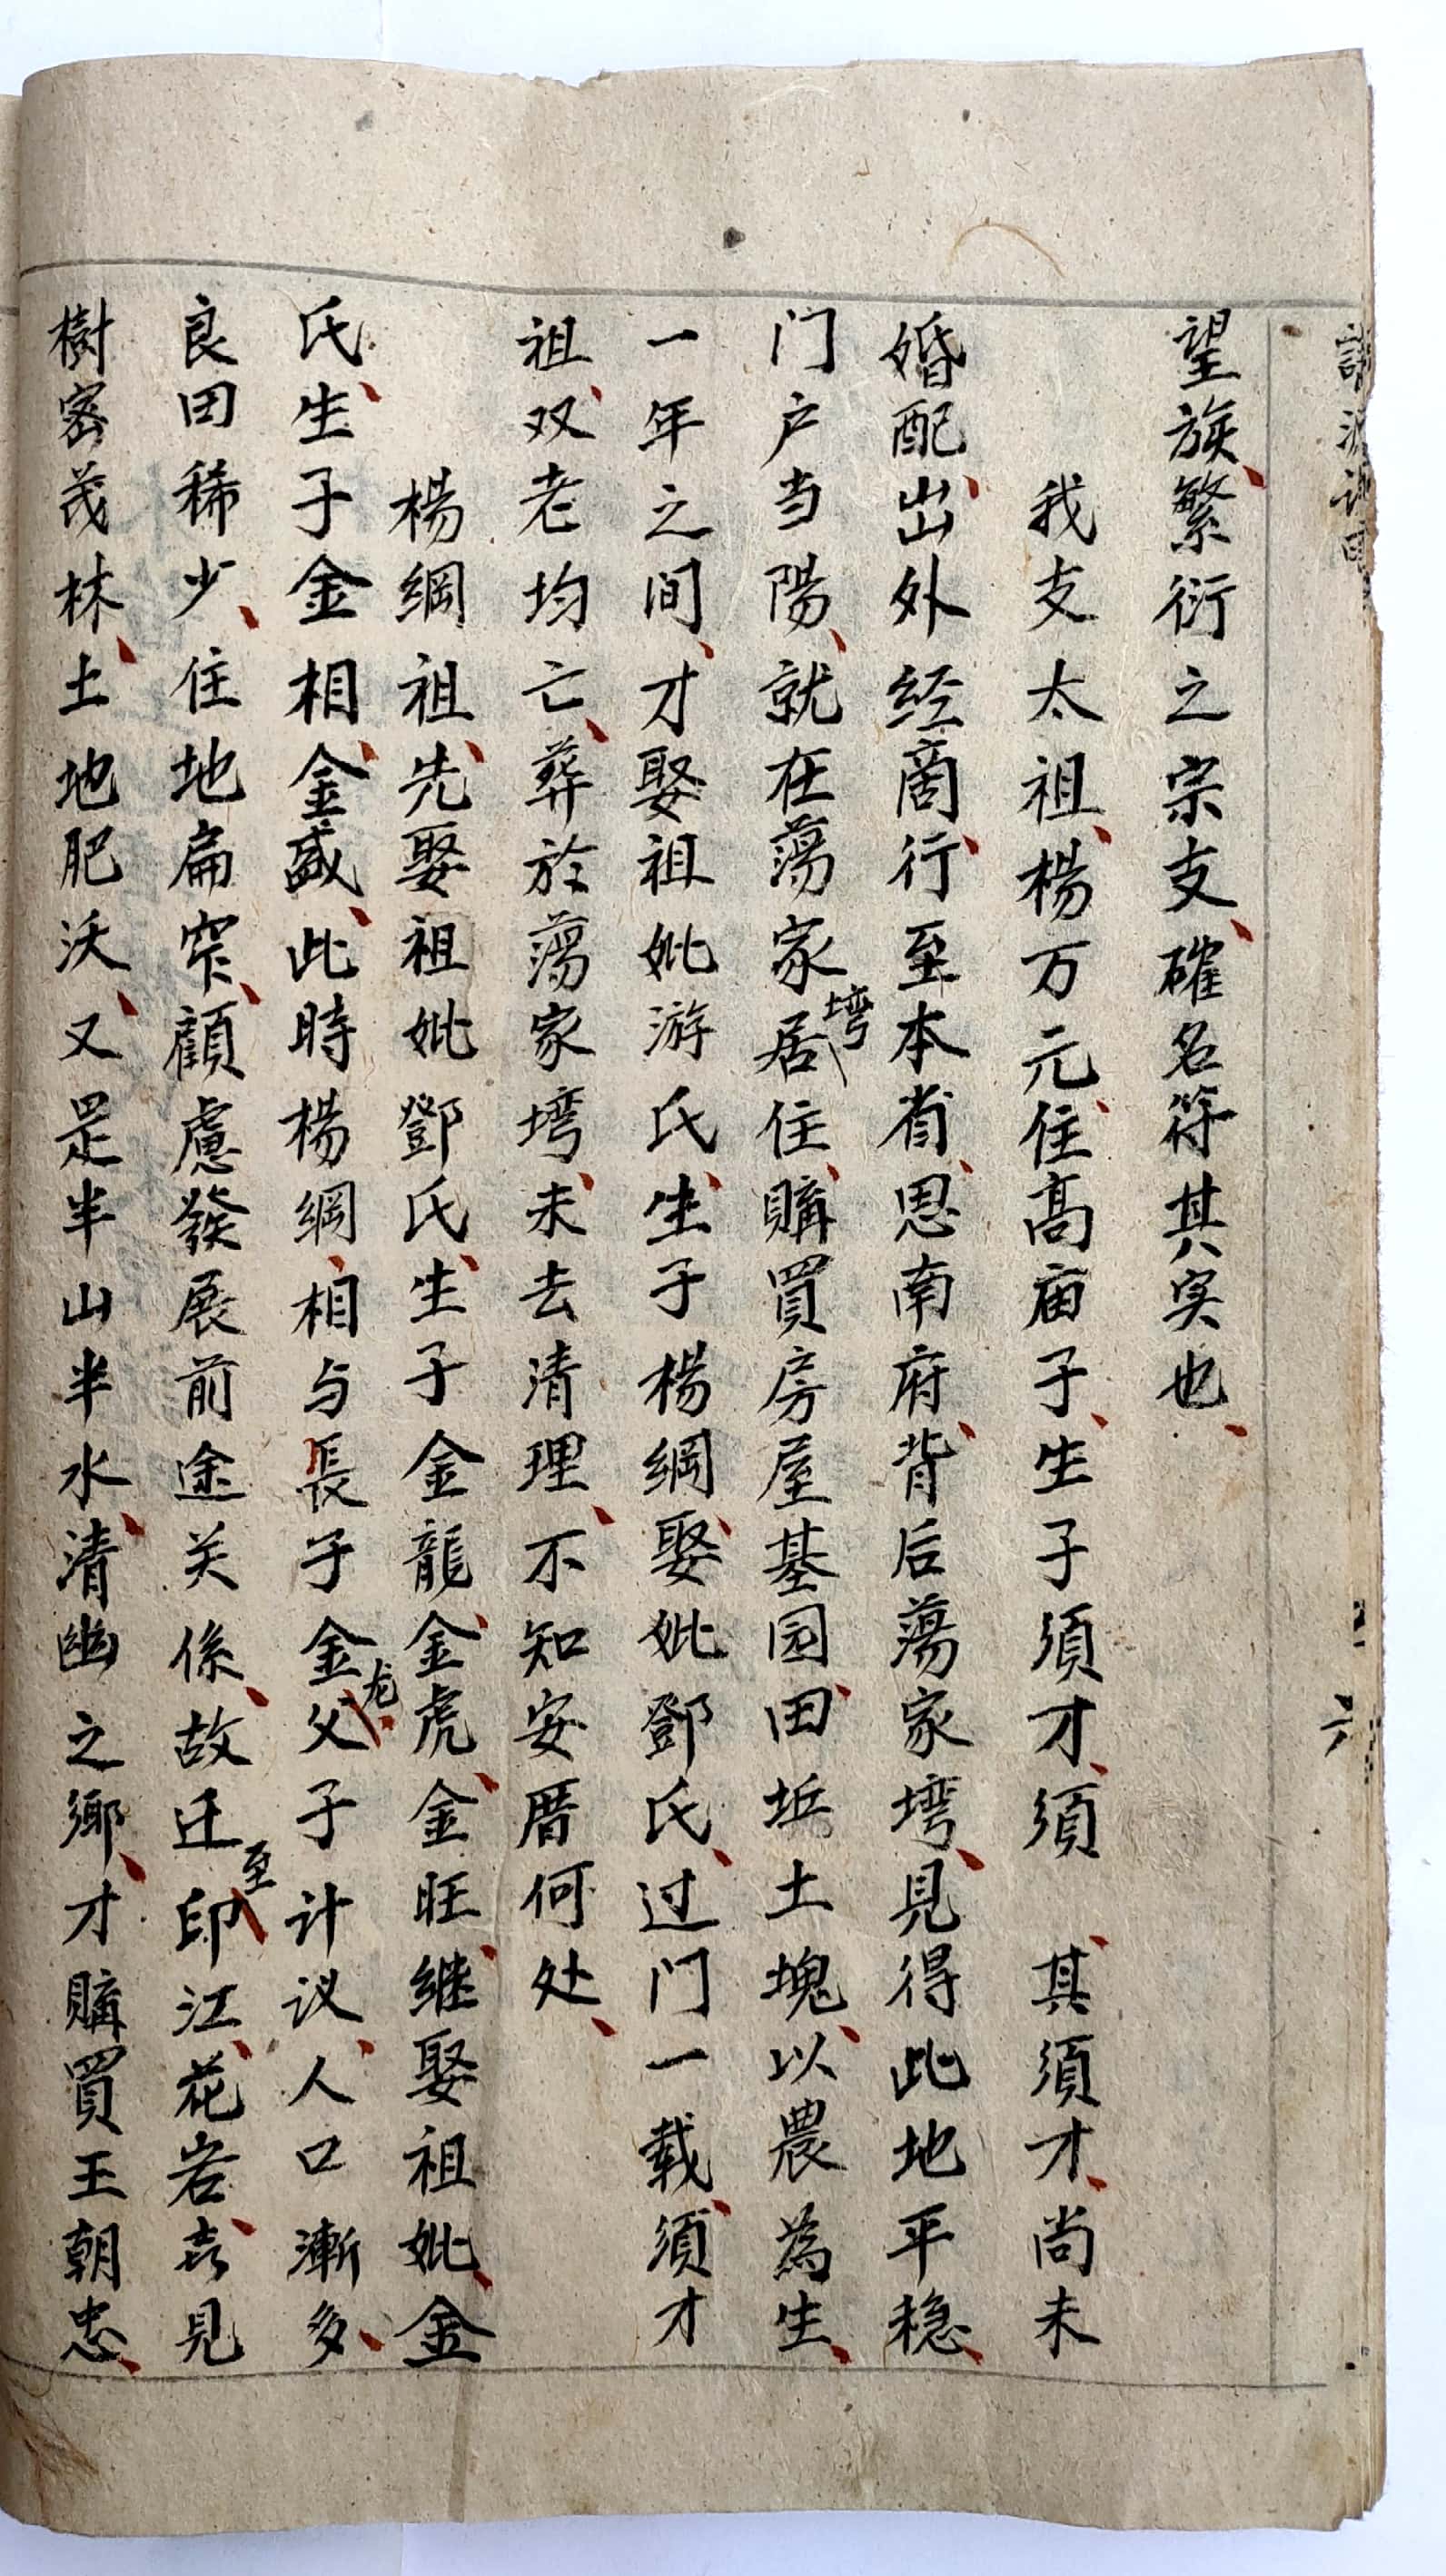 望族、繁衍之宗支、確名符其实也、
我支太祖、楊万元、住高庙子、生子須才、須　其、須才、尚未
婚配、出外经商、行至本省、思南府、背后蕩家塆、見得此地平稳、
门户当陽、就在蕩家塆居住、購買房屋基园、田坵土塊、以農為生、
一年之间、才娶祖妣游氏、生子楊綱、娶妣鄧氏、过门一载、須才
祖、双老均亡、葬於蕩家塆、未去清理、不知安厝何处、
楊綱祖、先娶祖妣鄧氏、生子金龍、金虎、金旺、继娶祖妣、金
氏、生子金相、金盛、此時楊綱、相与長子金龙父子计议、人口漸多、
良田稀少、住地扁窄、顧慮發展前途关係、故迁至印江、花岩、㐂見
樹密茂林、土地肥沃、又是半山半水、清幽之鄉、才購買王朝忠、
六